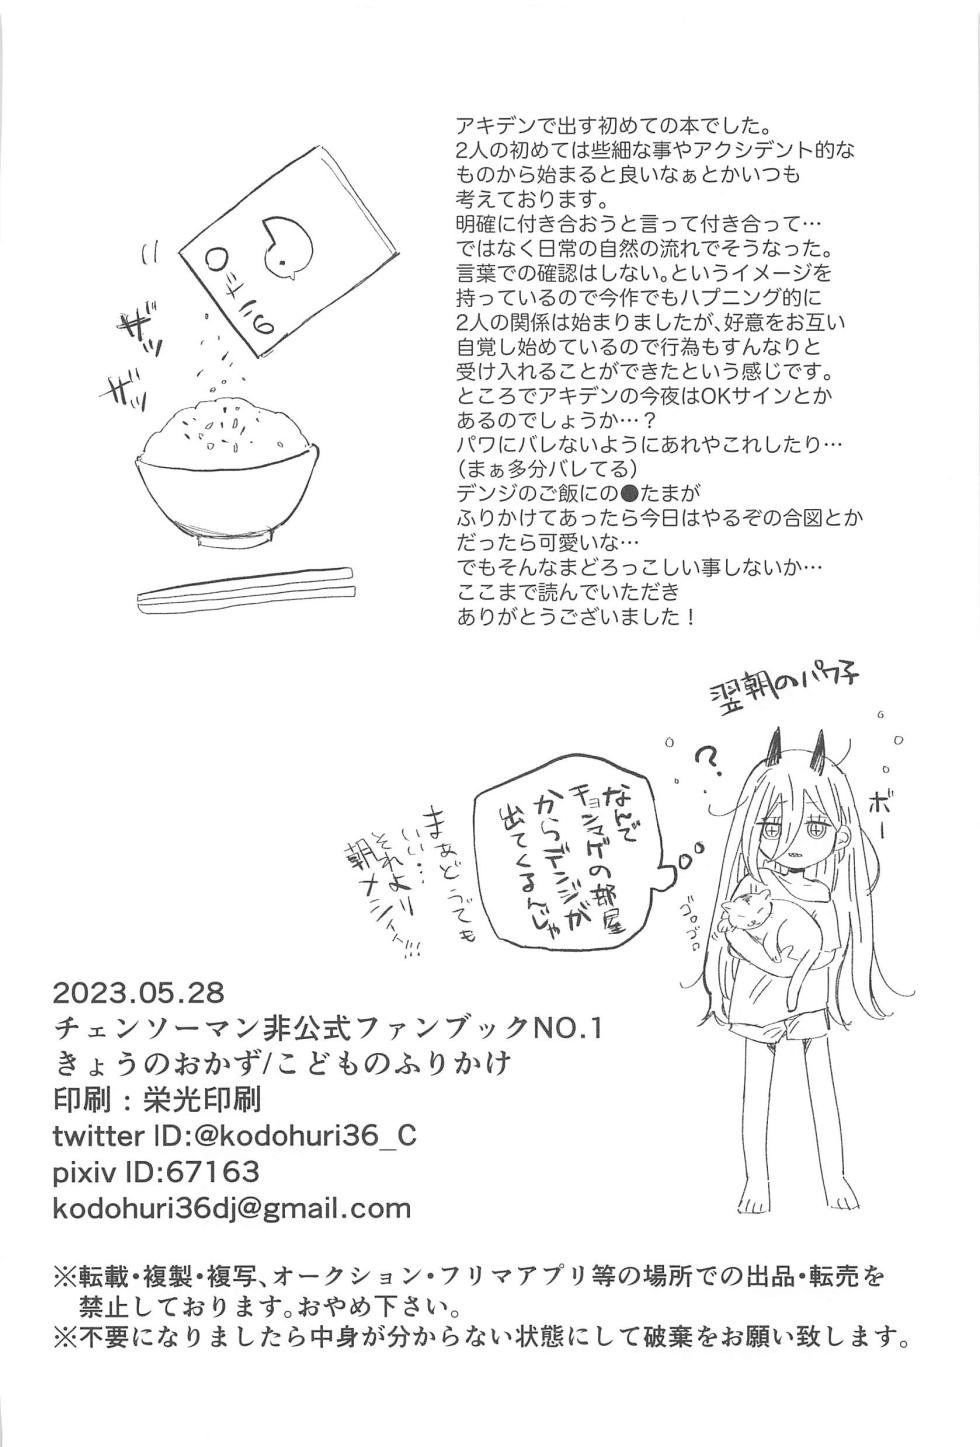 アキデンで出す初めての本でした。
2人の初めては些細な事やアクシデント的な
ものから始まると良いなぁとかいつも
考えております。
明確に付き合おうと言って付き合って…
ではなく日常の自然の流れでそうなった。
言葉での確認はしない。というイメージを
持っているので今作でもハプニング的に
2人の関係は始まりましたが、好意をお互い
自覚し始めているので行為もすんなりと
受け入れることができたという感じです。
ところでアキデンの今夜はOKサインとか
あるのでしょうか…？
パワにバレないようにあれやこれしたり…
（まぁ多分バレてる）
デンジのご飯にの●たまが
ふりかけてあったら今日はやるぞの合図とか
だったら可愛いな…
でもそんなまどろっこしい事しないか…
ここまで読んでいただき
ありがとうございました！
の
りたま
ザッ
ザッ
翌朝のパワ子
？
ボー
ゴロゴロ
なんで
チョンマゲの部屋
からデンジが
出てくるんじゃ
まぁどうでも
いい…
それより
朝メシィィ!!!
2023.05.28
チェンソーマン非公式ファンブックNO.1
きょうのおかず/こどものふりかけ
印刷：栄光印刷
twitter ID:@kodohuri36_C
pixiv ID:67163
kodohuri36dj@gmail.com
※転載・複製・複写、オークション・フリマアプリ等の場所での出品・転売を
禁止しております。おやめ下さい。
※不要になりましたら中身が分からない状態にして破棄をお願い致します。